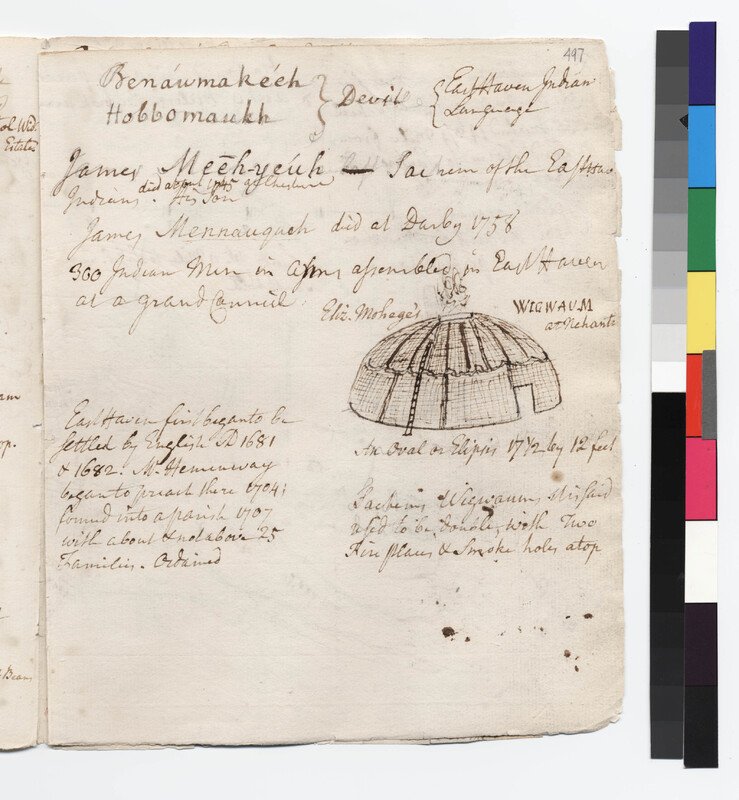 497
Benáwmakéeh } Devil { East Haven Indian
Hobbomaukh Language
James Meēh-yeúh — Sachem of the East Hav
Indians. died about 1745 at Cheshire His Son
James Mennauguch died at Darby 1758
300 Indian Men in Arms assembled in East Haven
at a grand Council
Eliz. Mohege's
WIGWAUM
at Nehanti
An Oval or Elipsis 17 1/2 by 12 feet
East Haven first began to be
settled by English AD 1681
& 1682. Mr. Hemenway
began to preach there 1704;
formed into a parish 1707
with about & not above 25
Families. Ordained
Sachems Wigwaums it is said
used to be double, with Two
Fire places & Smoke holes atop
ol Wid.
Estates
am
op.
Beans